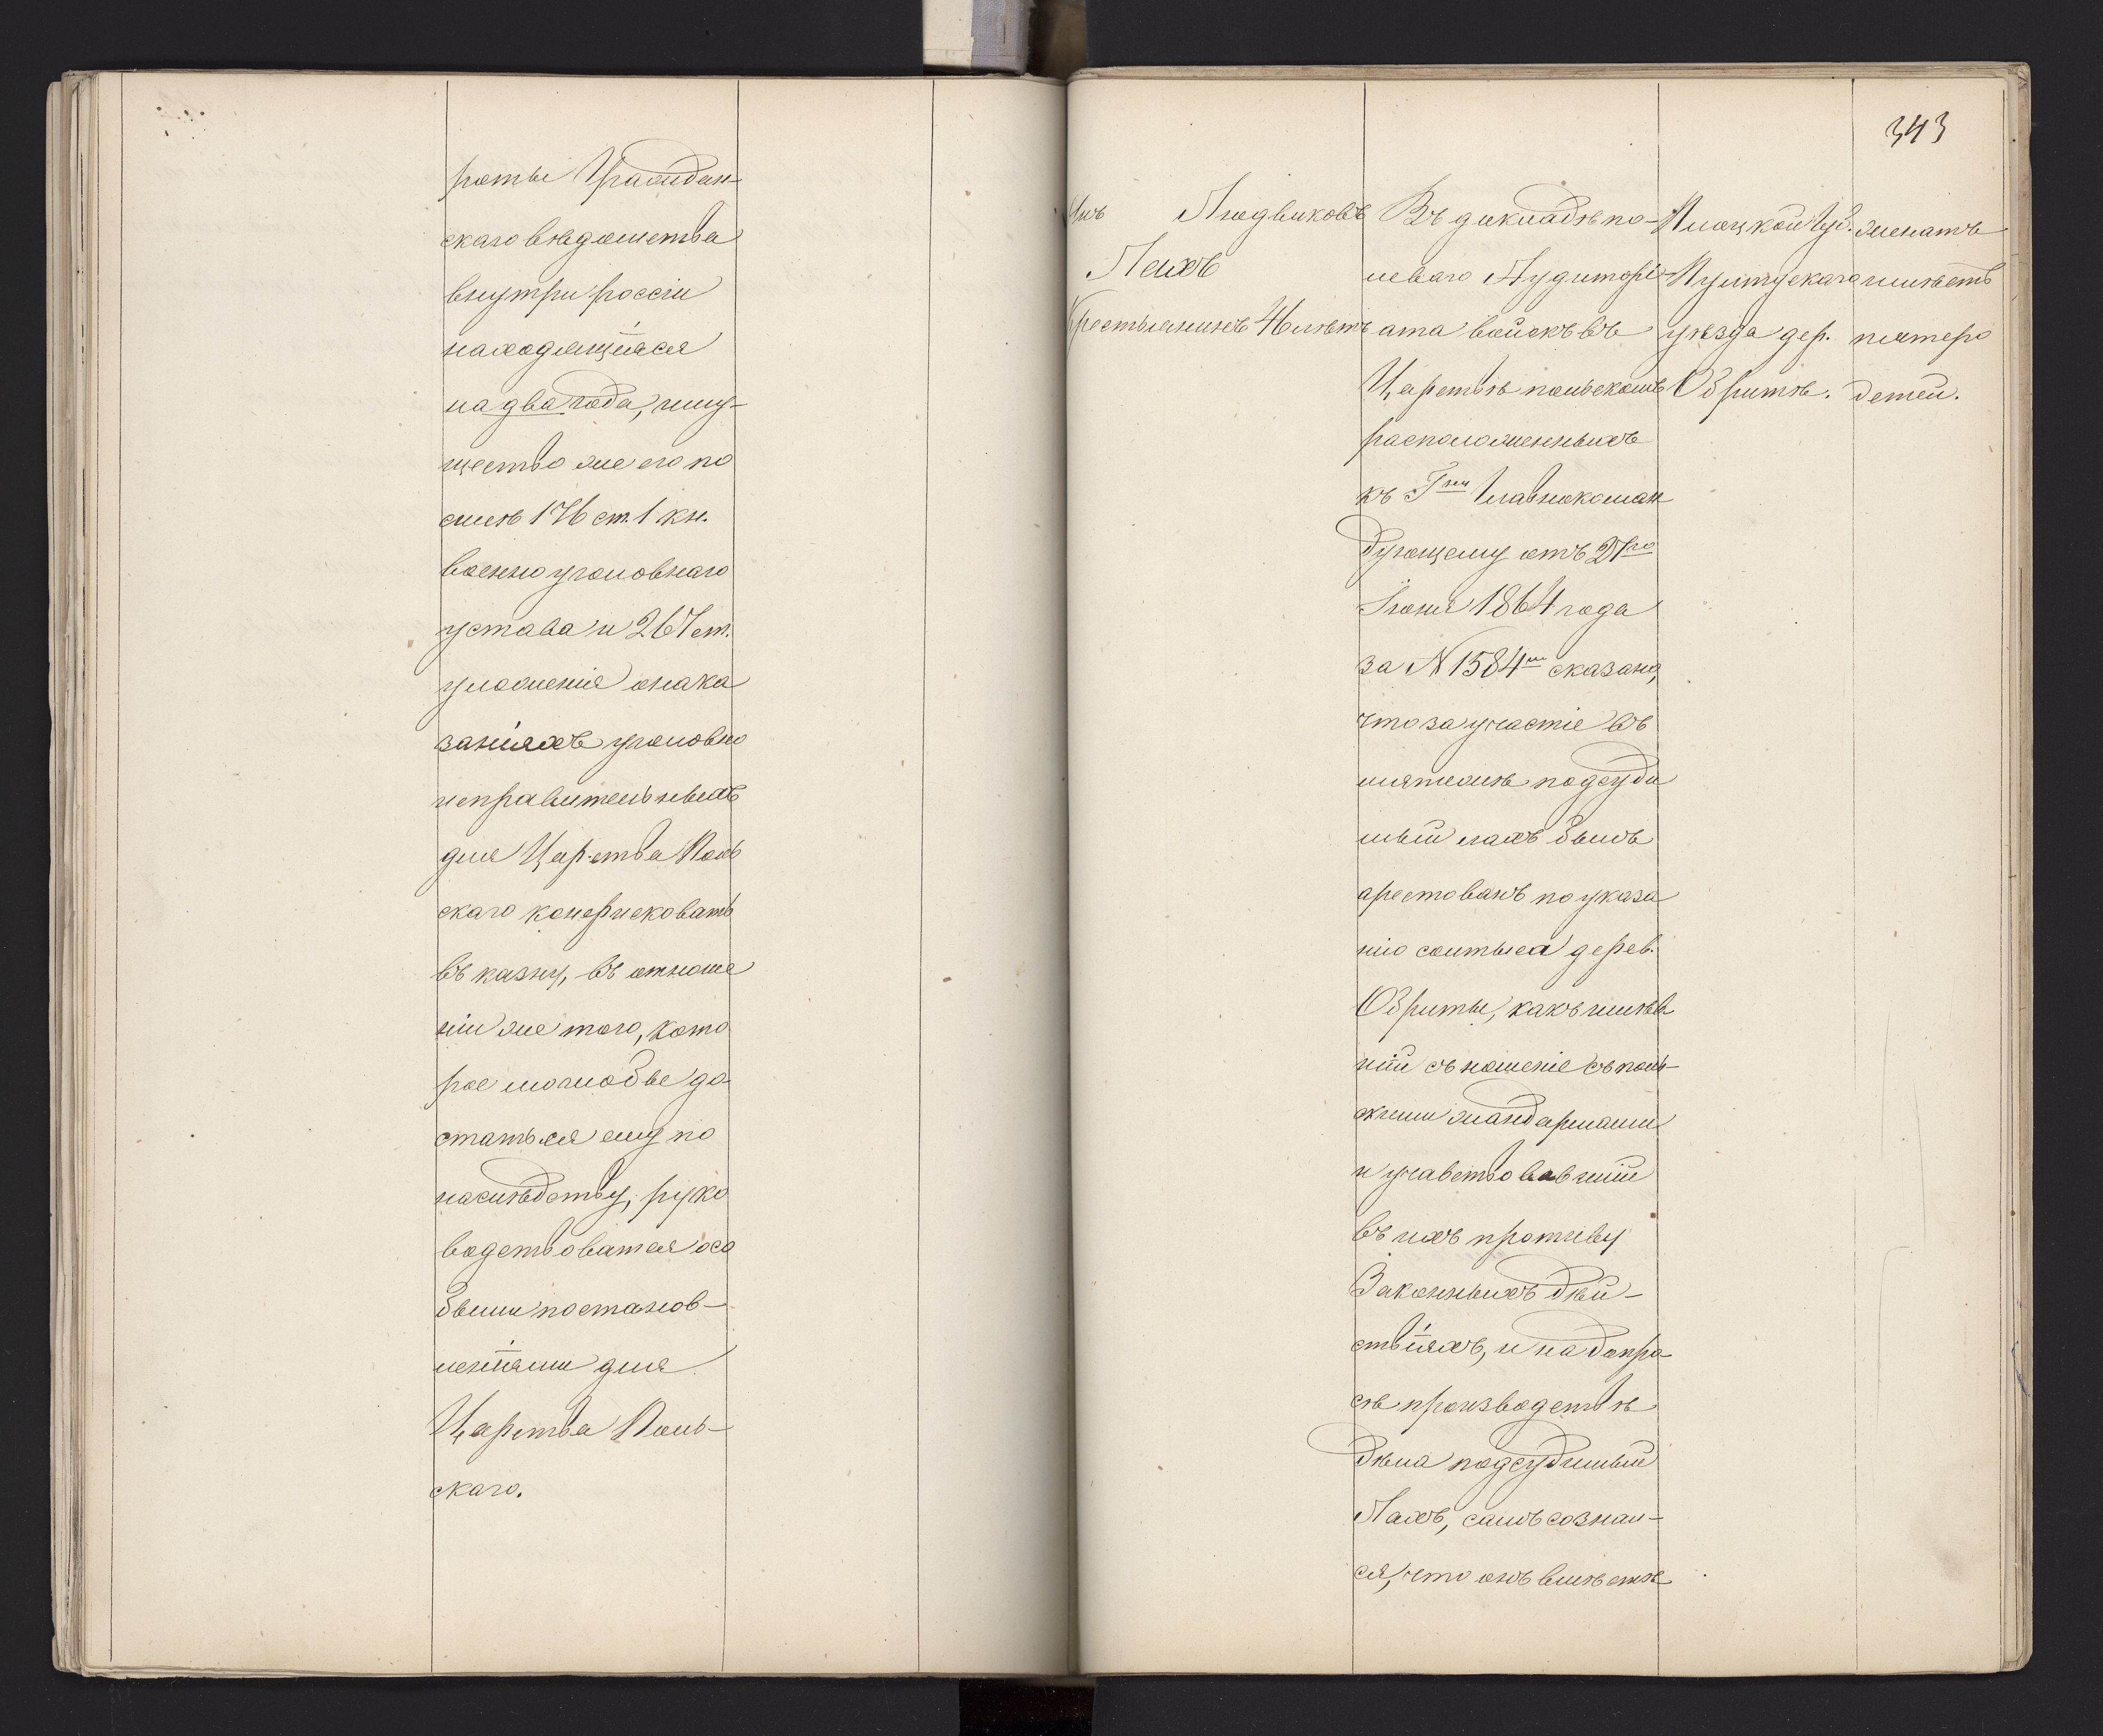 роты Граждан-
скаго вѣдомства
внутри россіи
находящіяся
на два года, иму-
щество же его по
силѣ 176 ст. 1 кн.
военно уголовнаго
устава и 267 ст.
уложенія онака
заніяхъ уголовно
исправительныхъ
для Царства Поль
скаго конфисковать
въ казну, въ отноше
ніи же того, кото
рое могло бы до
статься ему по
наслѣдству, руко
водствоватся осо
быми постанов-
леніями для
Царства Поль-
скаго.
343
Янъ Людвиковъ
Лахъ
Крестьянинъ 46 лѣтъ
Въ докладѣ по-
леваго Аудиторі
ата войскъ въ
Царствѣ польскомъ
расположенныхъ
къ Гну Главнокоман
дующему отъ 27го
Іюня 1864 года
за N 1584м сказано,
что за участіе въ
мятежѣ подсуди
мый лахъ былъ
арестованъ по указа
нію солтыса дерев.
Обрыты, какъ имѣв
шій сношеніе съ поль-
скими жандармами
и учавствовавшій
въ ихъ противу
Законныхъ дѣй-
ствіяхъ, и на допро
сѣ производствѣ
дѣла подсудимый
Лахъ, самъ сознал-
ся, что онъ вмѣстѣ
Плоцкой Губ.
Пултускаго
уѣзда дер.
Обритѣ.
женатъ
имѣетъ
пятеро
детей.